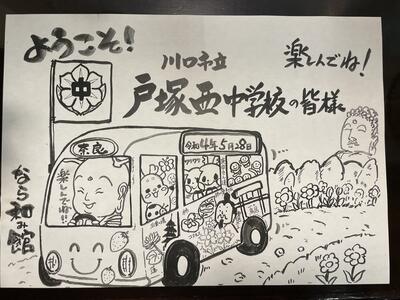 ようこそ!
川口市立
楽しんでね!
戸塚西中学校の皆様
中
奈良
令和4年5月28日
楽しんでね!!
なら和み館